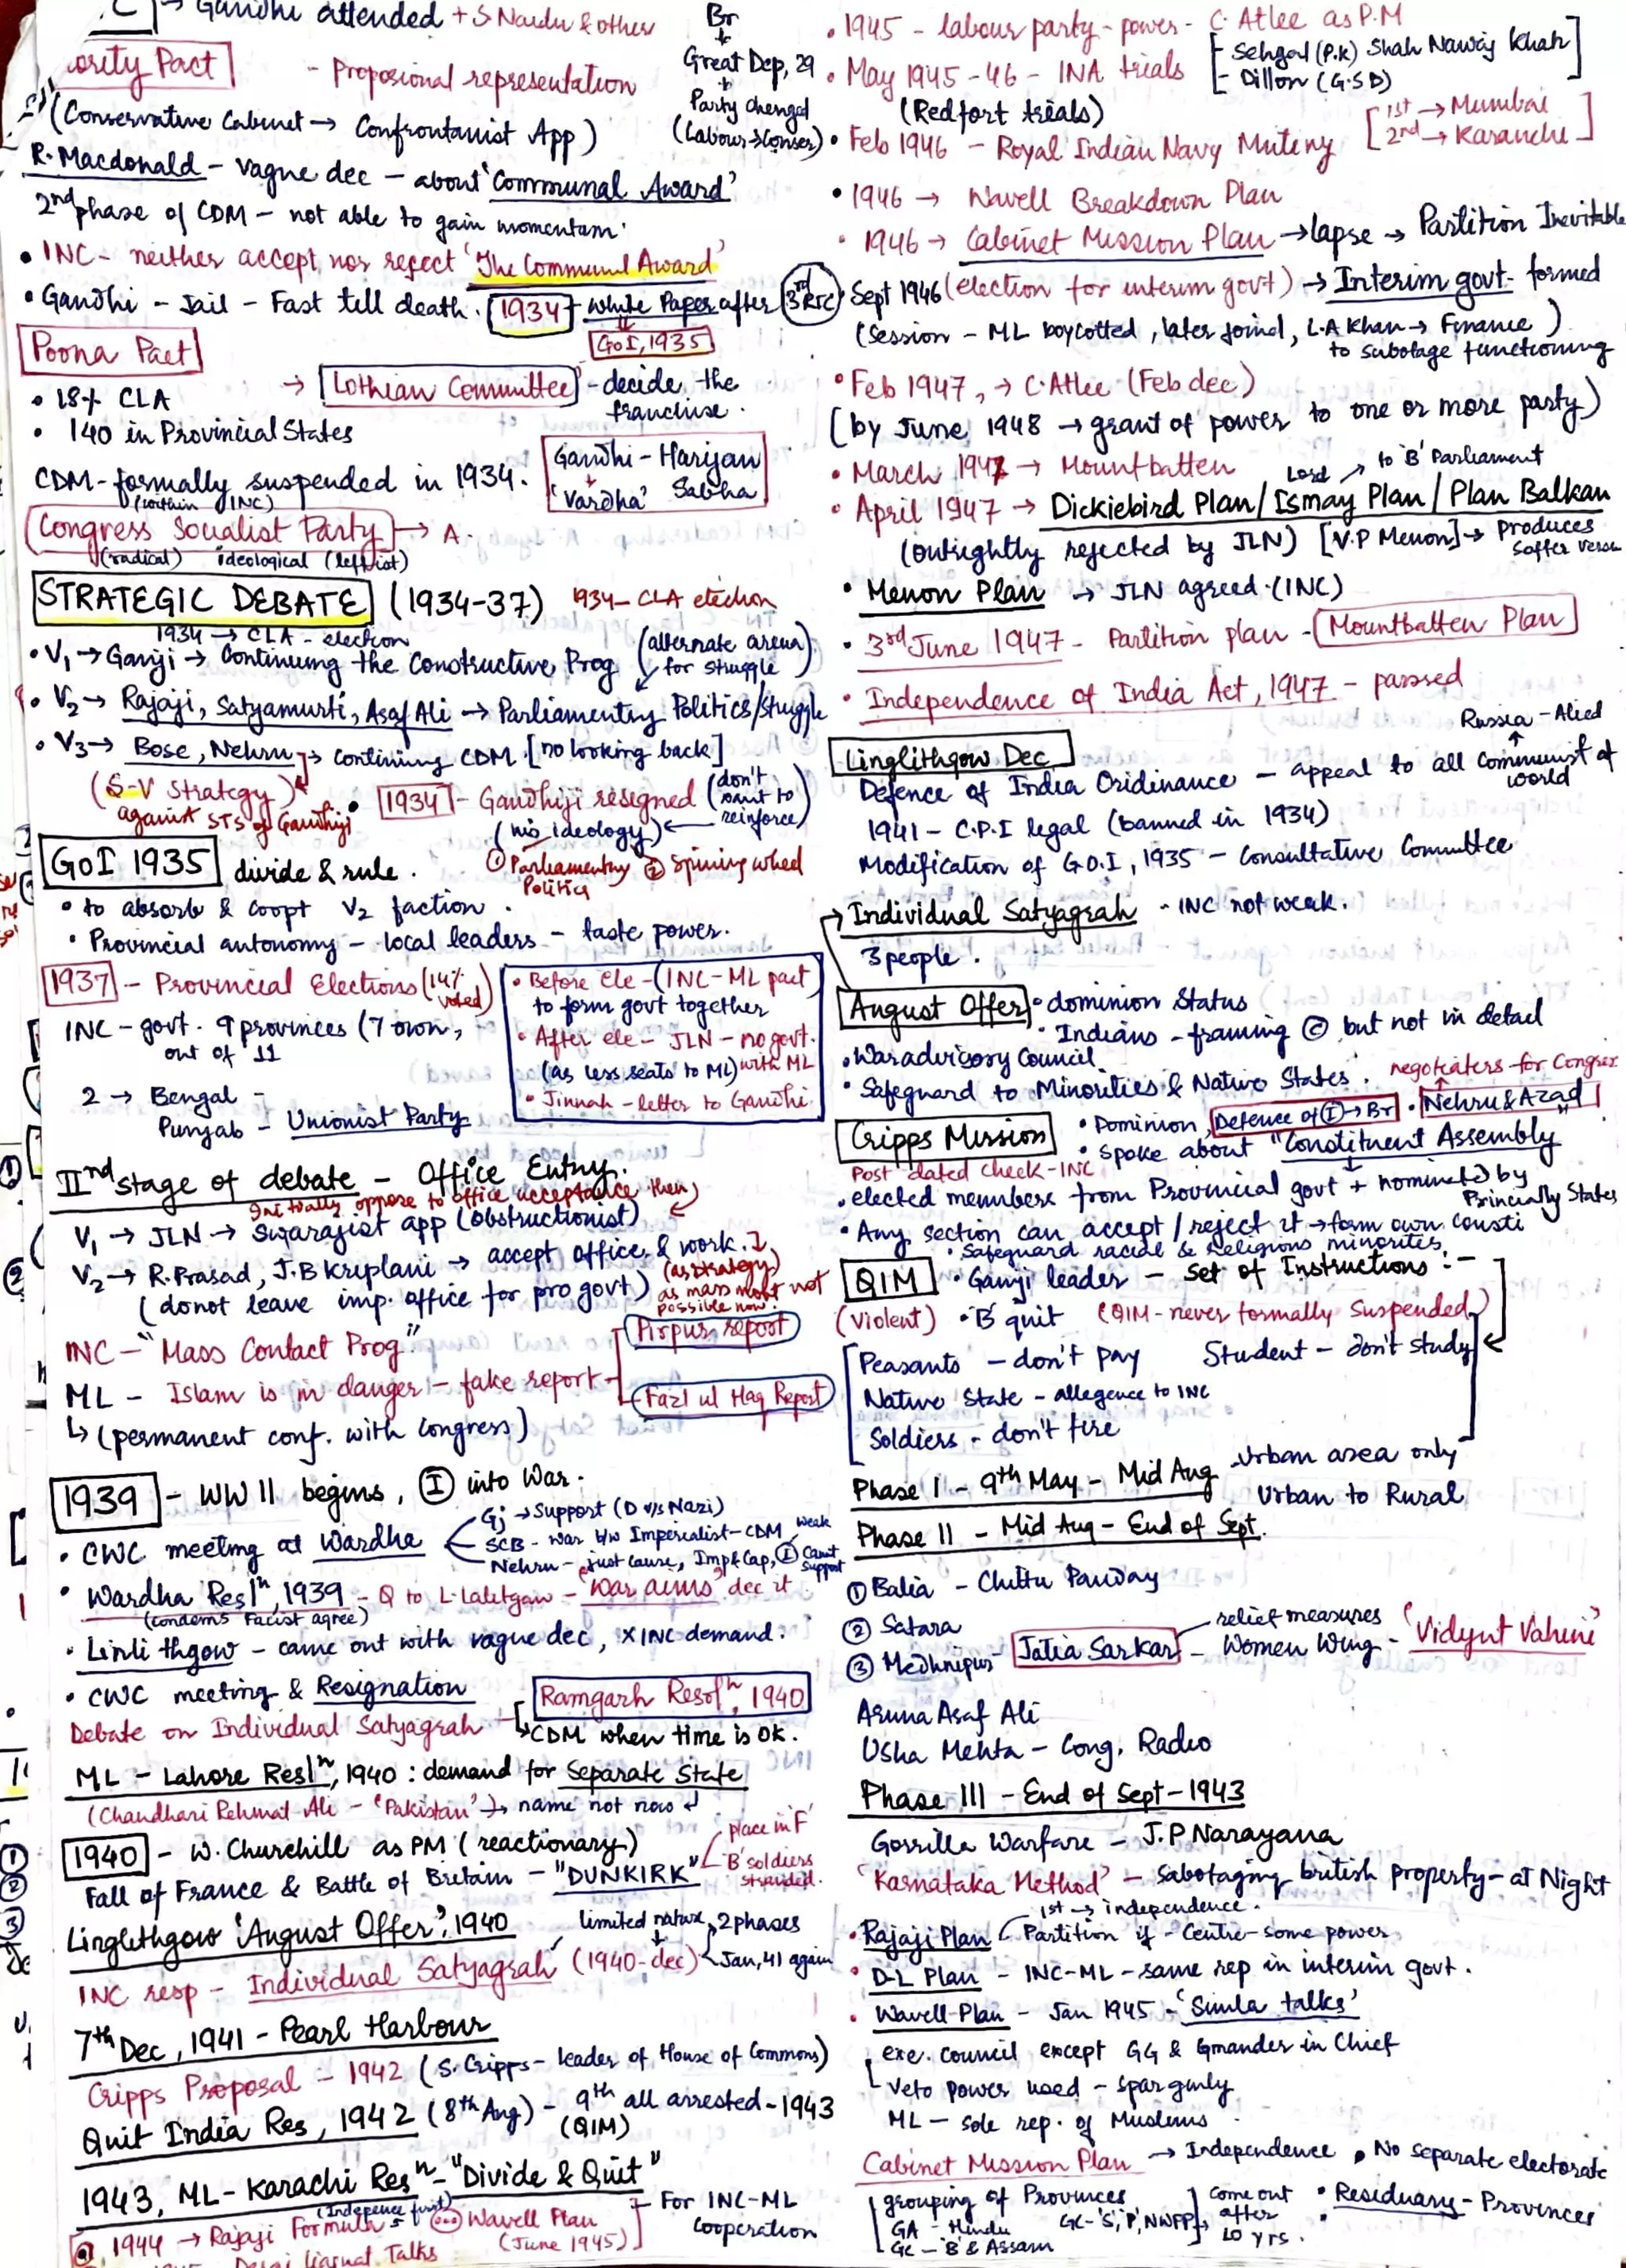 → Gandhi attended + S. Naidu & other
ority Pact
- Proposional representation
(Conservative Cabinet → Confrontanist App)
Br
↓
Great Dep, 29
↓
Party changed
(Labour→Conser)
R. Macdonald - vague dec - about 'Communal Award'
2nd phase of CDM - not able to gain momentum.
• INC - neither accept nor reject 'The Communal Award'
• Gandhi - Jail - Fast till death. 1934 - White Paper after 3rd RTC
GoI, 1935
Poona Pact
→ Lothian Committee - decide the franchise.
• 18% CLA
• 140 in Provincial States
CDM - formally suspended in 1934.
Gandhi - Harijan Sabha
'Vardha'
(within INC)
Congress Socialist Party → A.
(radical) ideological (leftist)
STRATEGIC DEBATE (1934-37) 1934 - CLA election
1934 → CLA - election
• V1 → Ganji → Continuing the Constructive Prog (alternate arena for struggle)
• V2 → Rajaji, Satyamurti, Asaf Ali → Parliamentry Politics/Struggle
• V3 → Bose, Nehru → Continuing CDM. [no looking back]
(S-V Strategy)
against STS of Gandhiji
• 1934 - Gandhiji resigned (don't want to reinforce)
(his ideology)
① Parliamentry Politics ② Spining wheel
GoI 1935 divide & rule.
• to absorb & coopt V2 faction.
• Provincial autonomy - local leaders - taste power.
1937 - Provincial Elections (14% voted)
INC - govt. 9 provinces (7 own,
out of 11
2 → Bengal -
Punjab - Unionist Party
• Before ele - (INC-ML pact)
to form govt together
• After ele - JLN - no govt.
(as less seats to ML) with ML
• Jinnah - letter to Gandhi
IInd stage of debate - Office Entry.
Initially oppose to office acceptance then
V1 → JLN → Swarajist app (obstructionist)
V2 → R. Prasad, J.B Kriplani → accept office & work.
(donot leave imp. office for pro govt) (as strategy) as mass movt not possible now.
INC - "Mass Contact Prog"
ML - Islam is in danger - fake report -
Pirpur report
Fazl ul Haq Report
↳ (permanent conf. with Congress)
1939 - WW II begins, Ⓘ into War.
• CWC meeting at Wardha
Gj → Support (D v/s Nazi)
SCB - war b/w Imperealist - CDM, weak
Nehru - just cause, Imp & Cap, Ⓘ Can't support
• Wardha Resln, 1939 - Q to L. Lalitgow - 'War aims' dec it
(condems Facist agree)
• Linli thgow - came out with vague dec, × INC demand.
• CWC meeting & Resignation
Debate on Individual Satyagrah
Ramgarh Resoln, 1940
↳ CDM when time is OK.
ML - Lahore Resln, 1940 : demand for Separate State
(Chaudhari Rehmat Ali - 'Pakistan') → name not now
1940 - W. Churchill as PM (reactionary)
Fall of France & Battle of Bretain - "DUNKIRK"
place in 'F'
'B' soldiers stranded.
Linglethgow 'August Offer', 1940
limited nature, 2 phases
INC resp - Individual Satyagrah (1940-dec) Jan, 41 again
7th Dec, 1941 - Pearl Harbour
Cripps Proposal - 1942 (S. Cripps - leader of House of Commons)
Quit India Res, 1942 (8th Aug) - 9th all arrested - 1943
(QIM)
1943, ML - Karachi Resn - "Divide & Quit"
(Indepence first)
1944 → Rajaji Formula
Wavell Plan
(June 1945)
For INC-ML Cooperation
Desai Liaquat Talks
• 1945 - labour party - power - C. Atlee as P.M
• May 1945-46 - INA trials
Sehgal (P.K) Shah Nawaj Khan
Dillon (G.S.D)
(Redfort trials)
• Feb 1946 - Royal Indian Navy Mutiny
1st → Mumbai
2nd → Karanchi
• 1946 → Wavell Breakdown Plan
• 1946 → Cabinet Mission Plan → lapse → Partition Inevitable
Sept 1946 (election for interim govt) → Interim govt. formed
(Session - ML boycotted, later joind, L.A Khan → Finance)
to sabotage functioning
• Feb 1947, → C. Atlee (Feb dec)
(by June, 1948 → grant of power to one or more party)
• March 1947 → Mountbatten
Lord → to 'B' Parliament
• April 1947 → Dickiebird Plan/Ismay Plan/Plan Balkan
(outrightly rejected by JLN) [V.P Menon] → Produces Soffer version
• Menon Plan → JLN agreed. (INC)
• 3rd June 1947 - Partition plan - Mountbatten Plan
• Independence of India Act, 1947 - passed
Russia - Alied
Linglithgow Dec
Defence of India Oridinance - appeal to all Communist of world
1941 - C.P.I legal (banned in 1934)
Modification of G.O.I, 1935 - Consultative Committee
Individual Satyagrah - INC not weak.
3 people.
August Offer • dominion Status
• Indians - framing © but not in detail
• War advisory Council
• Safeguard to Minorities & Native States.
negotiaters for Congress
Nehru & Azad
Cripps Mission • Dominion, Defence of Ⓘ → Br
• Spoke about "Constituent Assembly"
Post dated check - INC
• elected members from Provincial govt + nominated by Princially States
• Any section can accept/reject it → form own consti
• Safeguard racial & Religious minorities
QIM • Ganji leader - Set of Instructions :-
(Violent) • 'B' quit (QIM - never formally suspended)
Peasants - don't pay Student - don't study
Native State - allegence to INC
Soldiers - don't fire
Phase I - 9th May - Mid Aug - Urban area only
Phase II - Mid Aug - End of Sept. Urban to Rural
① Balia - Chittu Panday
② Satara
③ Medhnipur - Jatia Sarkar - relief measures
Women Wing - 'Vidyut Vahini'
Aruna Asaf Ali
Usha Mehta - Cong. Radio
Phase III - End of Sept - 1943
Gorrilla Warfare - J.P Narayana
'Karnataka Method' - Sabotaging british property - at Night
• Rajaji Plan
1st → independence.
Partition if - Centre - some power
• D-L Plan - INC-ML - same rep in interim govt.
• Wavell-Plan - Jan 1945 - 'Simla talks'
exe. council except GG & Cmander in Chief
Veto power used - sparginly
ML - sole rep. of Muslims
Cabinet Mission Plan → Independence • No separate electorate
grouping of Provinces
GA - Hindu GC - 'S', 'P', NWFP
GC - 'B' & Assam
come out after 10 yrs.
• Residuary - Provinces